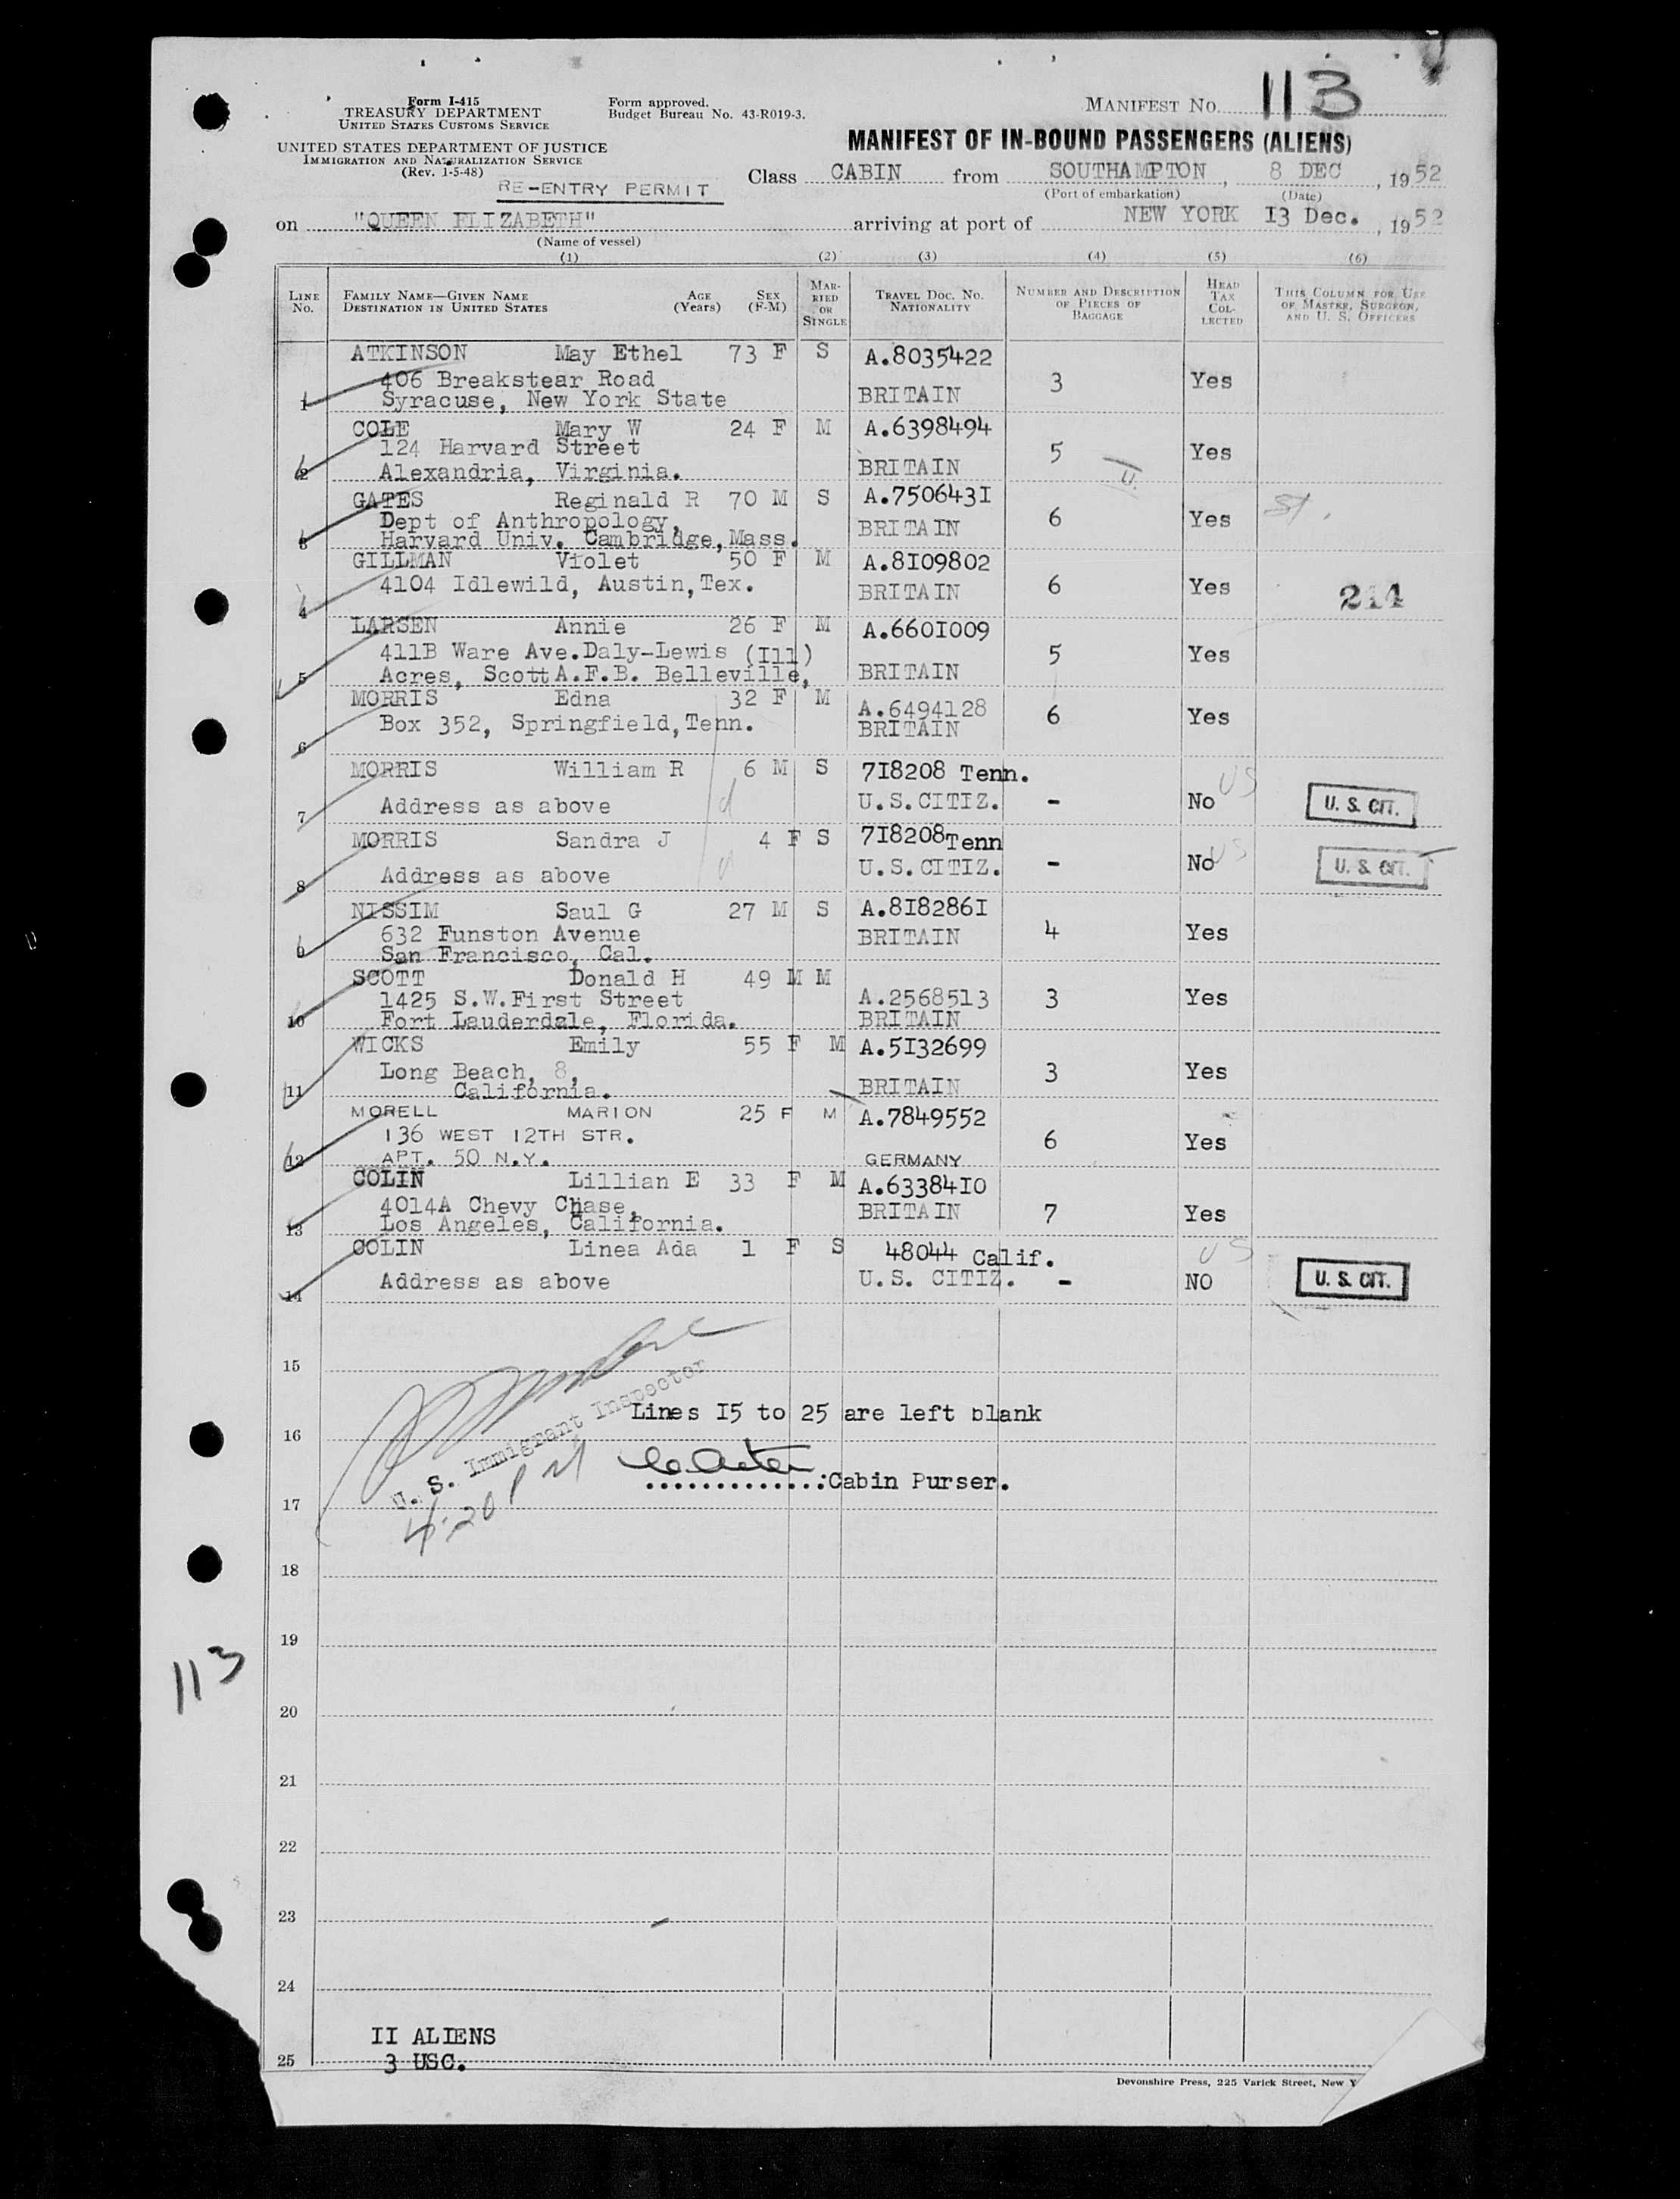 Form I-415
TREASURY DEPARTMENT
UNITED STATES CUSTOMS SERVICE
UNITED STATES DEPARTMENT OF JUSTICE
IMMIGRATION AND NATURALIZATION SERVICE
(Rev. 1-5-48)
Form approved.
Budget Bureau No. 43-R019-3.
MANIFEST No. 113
MANIFEST OF IN-BOUND PASSENGERS (ALIENS)
RE-ENTRY PERMIT
Class CABIN from SOUTHAMPTON, 8 DEC, 1952
(Port of embarkation) (Date)
on "QUEEN ELIZABETH" arriving at port of NEW YORK I3 Dec., 1952
(Name of vessel)
(1) (2) (3) (4) (5) (6)
LINE No. FAMILY NAME—GIVEN NAME DESTINATION IN UNITED STATES AGE (Years) SEX (F-M) MARRIED OR SINGLE TRAVEL DOC. NO. NATIONALITY NUMBER AND DESCRIPTION OF PIECES OF BAGGAGE HEAD TAX COLLECTED THIS COLUMN FOR USE OF MASTER, SURGEON, AND U. S. OFFICERS
ATKINSON May Ethel 73 F S A.8035422
406 Breakstear Road 3 Yes
1 Syracuse, New York State BRITAIN
COLE Mary W 24 F M A.6398494
124 Harvard Street 5 Yes
2 Alexandria, Virginia. BRITAIN
U.
GATES Reginald R 70 M S A.750643I
Dept of Anthropology, BRITAIN 6 Yes St.
3 Harvard Univ. Cambridge, Mass.
GILLMAN Violet 50 F M A.8I09802
4104 Idlewild, Austin, Tex. BRITAIN 6 Yes 214
4
LARSEN Annie 26 F M A.660I009
411B Ware Ave. Daly-Lewis (Ill) 5 Yes
5 Acres, Scott A.F.B. Belleville, BRITAIN
MORRIS Edna 32 F M A.6494128
Box 352, Springfield, Tenn. BRITAIN 6 Yes
6
MORRIS William R 6 M S 7I8208 Tenn. US
7 Address as above U.S.CITIZ. - No U. S. CIT.
MORRIS Sandra J 4 F S 7I8208 Tenn
8 Address as above U.S.CITIZ. - No US U. S. CIT.
NISSIM Saul G 27 M S A.8I8286I
632 Funston Avenue BRITAIN 4 Yes
9 San Francisco, Cal.
SCOTT Donald H 49 M M
1425 S.W.First Street A.2568513 3 Yes
10 Fort Lauderdale, Florida. BRITAIN
WICKS Emily 55 F M A.5I32699
Long Beach, 8, 3 Yes
11 California. BRITAIN
MORELL MARION 25 F M A.7849552
136 WEST 12TH STR. 6 Yes
12 APT. 50 N.Y. GERMANY
COLIN Lillian E 33 F M A.63384I0
4014A Chevy Chase, BRITAIN 7 Yes
13 Los Angeles, California.
COLIN Linea Ada 1 F S 48044 Calif. US
14 Address as above U.S. CITIZ. - NO U. S. CIT.
15
Lines I5 to 25 are left blank
16
U. S. Immigrant Inspector
4:20 PM
.............:Cabin Purser.
17
18
19
113
20
21
22
23
24
II ALIENS
25 3 USC.
Devonshire Press, 225 Varick Street, New Y